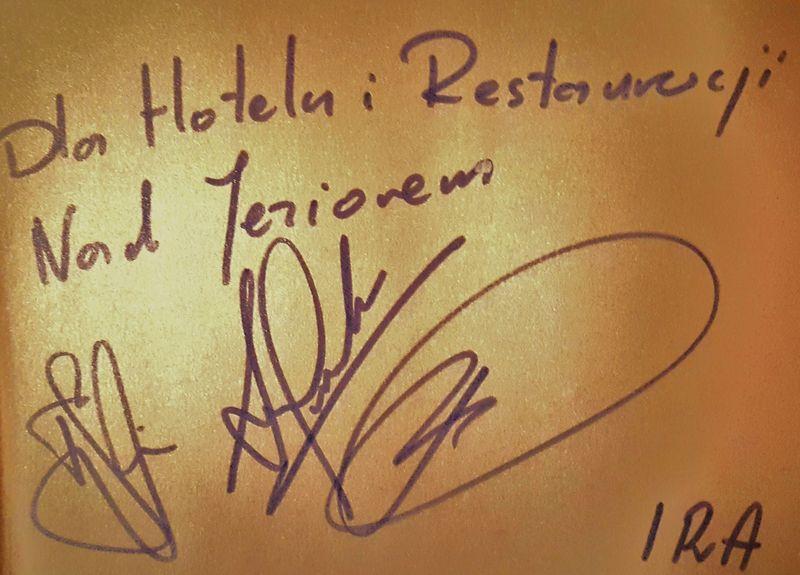 Dla Hotelu i Restauracji
Nad Jeziorem
IRA